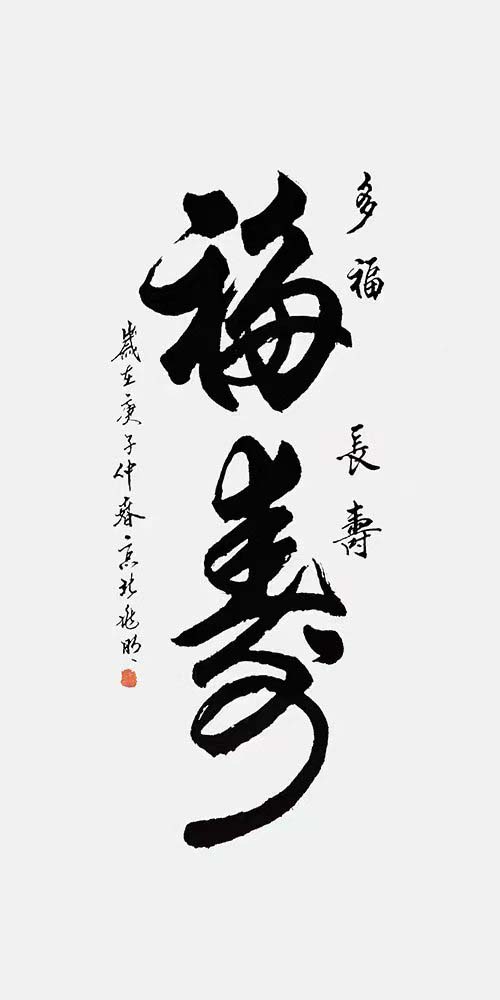 多福
長壽
福壽
歲在庚子仲春京北兆明